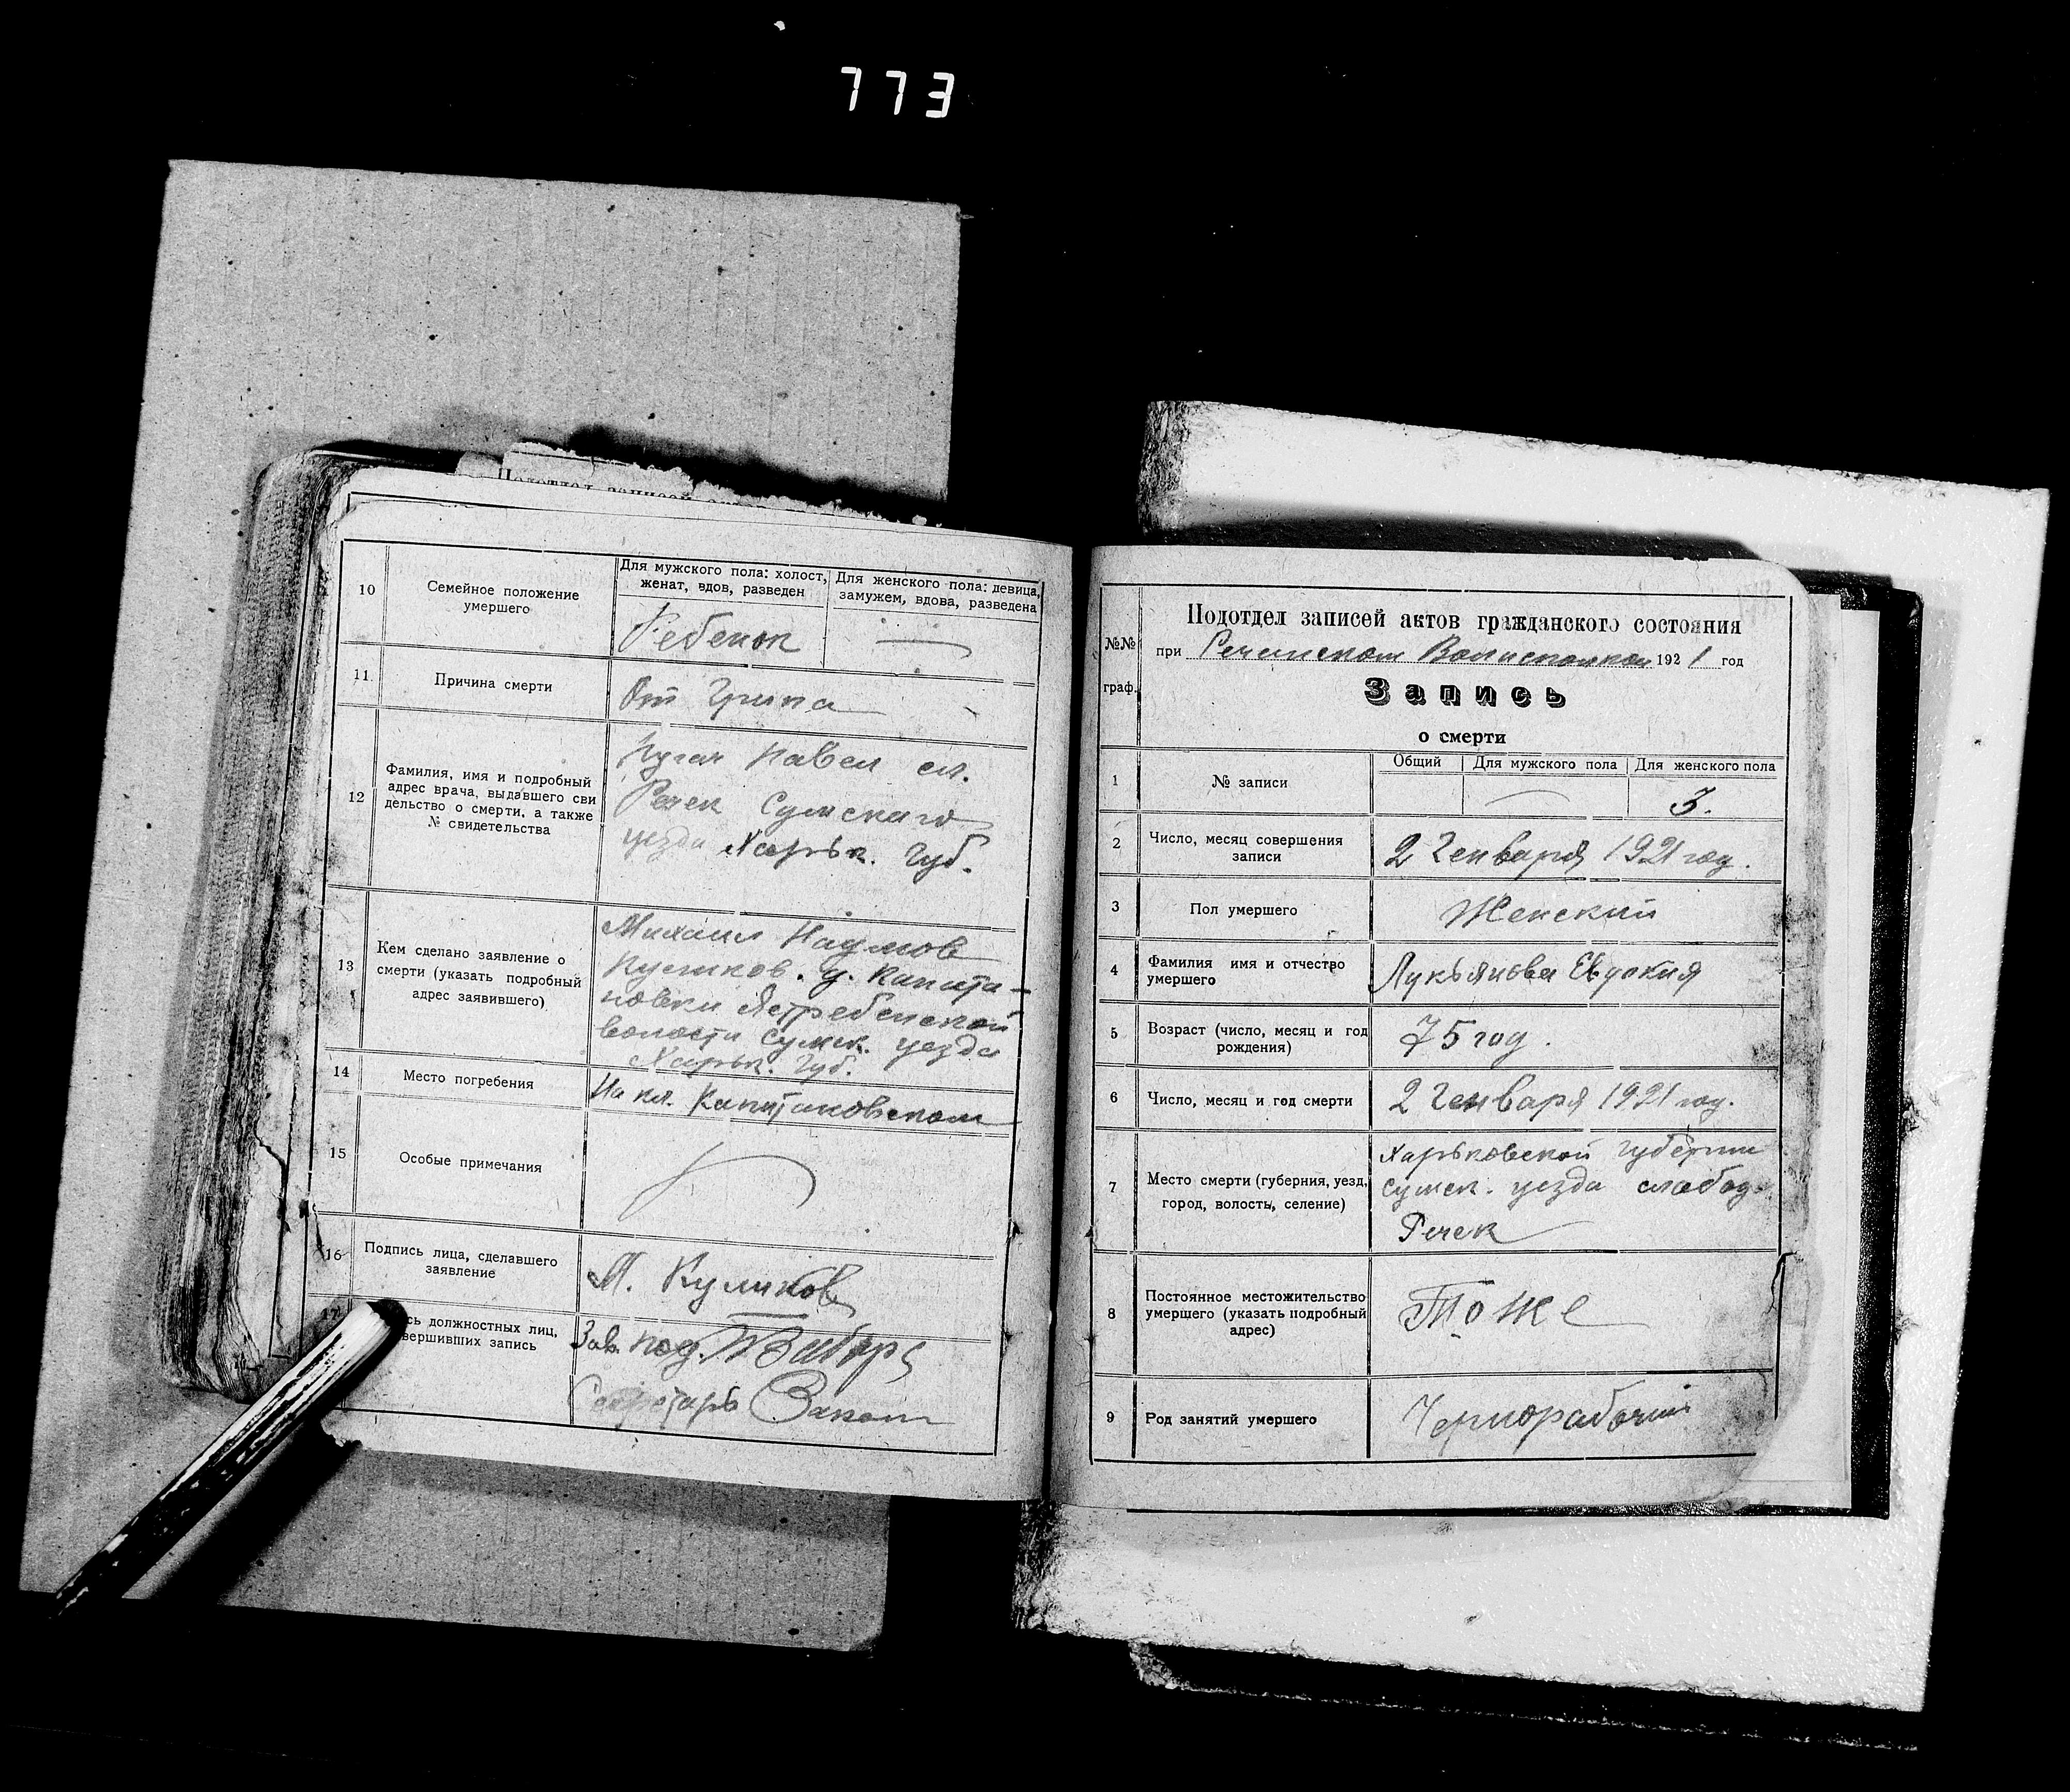 773
Подотдел записей
10
Семейное положение
умершего
Для мужского пола: холост,
женат, вдов, разведен
Для женского пола: девица,
замужем, вдова, разведена
Ребенок
11.
Причина смерти
От Грипа
12
Фамилия, имя и подробный
адрес врача, выдавшего сви
дельство о смерти, а также
№ свидетельства
Павел сл.
Речек Сумскаго
уезда Харьк. Губ.
13
Кем сделано заявление о
смерти (указать подробный
адрес заявившего)
Михаил Наумов
Куликов. д. Капита-
новки Ястребенской
волости Сумск. уезда
Харьк. Губ.
14
Место погребения
На кл. Капитановском
15
Особые примечания
16
Подпись лица, сделавшего
заявление
М. Куликов
17
сь должностных лиц,
вершивших запись
Зав. под.
Секретарь
№№
граф.
Подотдел записей актов гражданского состояния
при Реченском Волисполком 1921 год
Запись
о смерти
1
№ записи
Общий
Для мужского пола
Для женского пола
3.
2
Число, месяц совершения
записи
2 Генваря 1921 год.
3
Пол умершего
Женский
4
Фамилия имя и отчество
умершего
Лукьянова Евдокия
5
Возраст (число, месяц и год
рождения)
75 год.
6
Число, месяц и год смерти
2 Генваря 1921 год.
7
Место смерти (губерния, уезд,
город, волость, селение)
Харьковской губернии
Сумск. уезда слобод.
Речек
8
Постоянное местожительство
умершего (указать подробный
адрес)
Тоже
9
Род занятий умершего
Чернорабочий